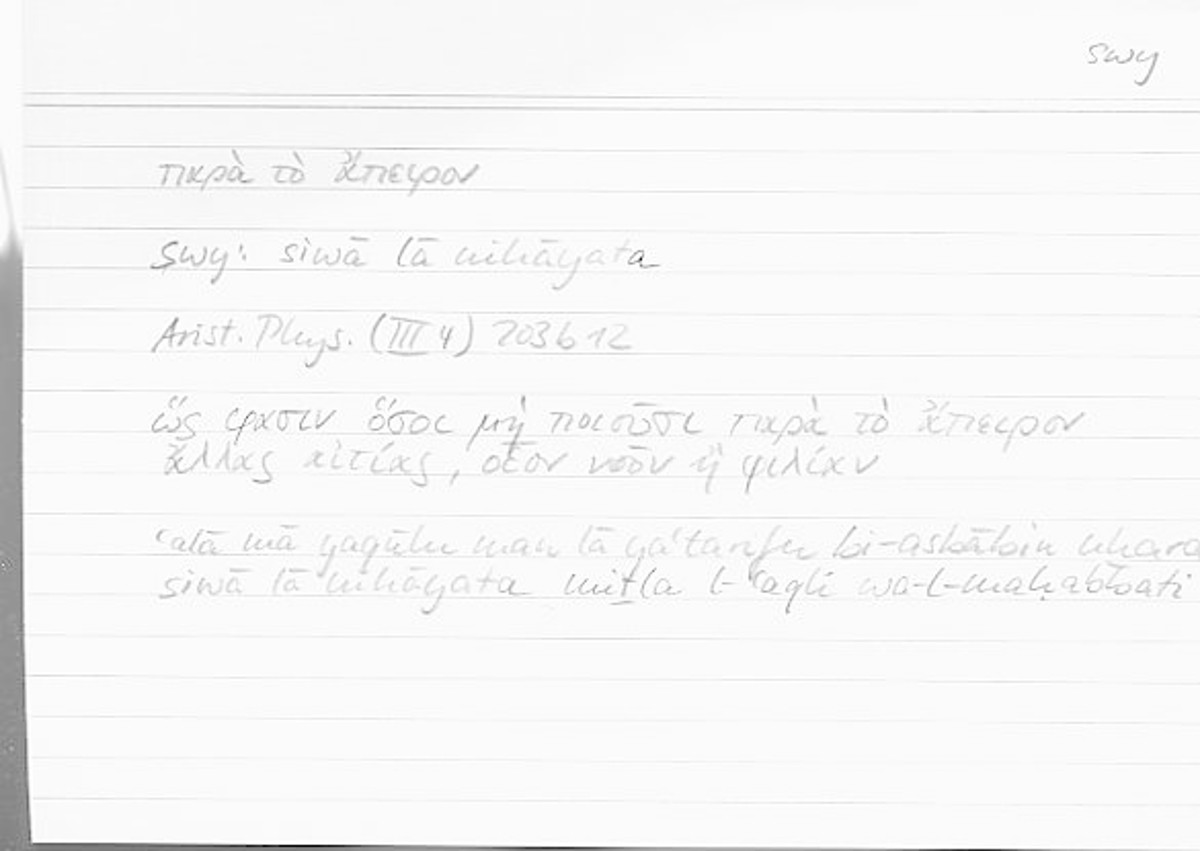 swy
παρὰ τὸ ἄπειρον
swy: siwā lā nihāyata
Arist. Phys. (III 4) 203 b 12
ὥς φασιν ὅσοι μὴ ποιοῦσι παρὰ τὸ ἄπειρον
ἄλλας αἰτίας, οἷον νοῦν ἢ φιλίαν
ʿalā mā yaqūlu man lā yaʿtarifu bi-asbābin uḫara
siwā lā nihāyata miṯla l-ʿaqli wa-l-maḥabbati